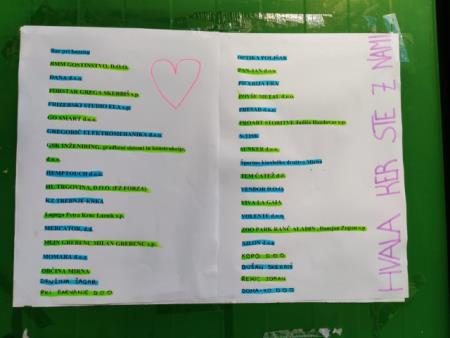 Bar pri bazenu
BMM GOSTINSTVO, D.O.O.
DANA d.o.o.
FORSTAR GREGA SKERBIŠ s.p.
FRIZERSKI STUDIO ELA s.p.
GO SMART d.o.o.
GREGORIČ ELEKTROMEHANIKA d.o.o.
GSK INŽENIRING, gradbeni sistemi in konstrukcije,
d.o.o.
HEMPTOUCH d.o.o.
HI, TRGOVINA, D.O.O.
KZ TREBNJE-KRKA
Petra Krnc Laznik s.p.
MERCATOR, d.d.
MLIN GREBENC MILAN GREBENC s.p.
MOMARA d.o.o.
OBČINA MIRNA
DRUŽINA ŽAGAR
PKI BARVANJE D.O.O
OPTIKA POLIŠAR
PAN-JAN d.o.o.
PICERIJA ERA
POVŠE METAL d.o.o.
PREBAD d.o.o.
PROART STORITVE s.p.
N-TISK
SUNKER d.o.o.
Športno kinološko društvo Mirna
TEM ČATEŽ d.d.
VENDOR D.O.O.
VIVA LA GAIA
VOLENTE d.o.o.
ZOO PARK RANČ ALADIN, Damjan Zupan s.p.
XILON d.o.o.
KOPO D.O.O
DUŠAN SKERBIŠ
REMIC ZORAN
DOMA-KO D.O.O
HVALA KER STE Z NAMI